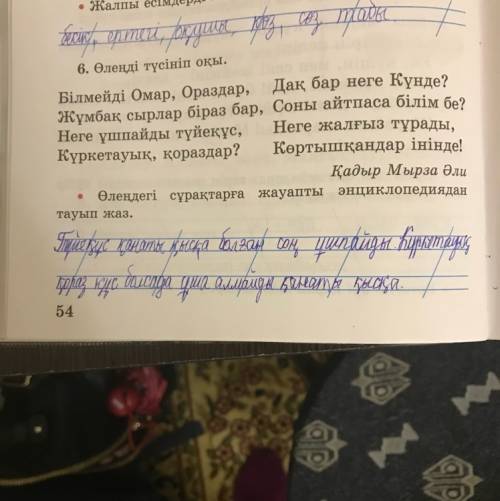 • Жалпы есімдерд
бесік, ертегі, оқушы, қаз, сөз табы.
6. Өлеңді түсініп оқы.
Білмейді Омар, Ораздар,
Жұмбақ сырлар біраз бар,
Неге ұшпайды түйеқұс,
Күркетауық, қораздар?
Дақ бар неге Күнде?
Соны айтпаса білім бе?
Неге жалғыз тұрады,
Көртышқандар інінде!
Қадыр Мырза Әли
• Өлеңдегі сұрақтарға жауапты энциклопедиядан
тауып жаз.
Түйеқұс қанаты қысқа болған соң ұшпайды. Күркетауық
қораз құс болсада ұша алмайды қанаты қысқа.
54